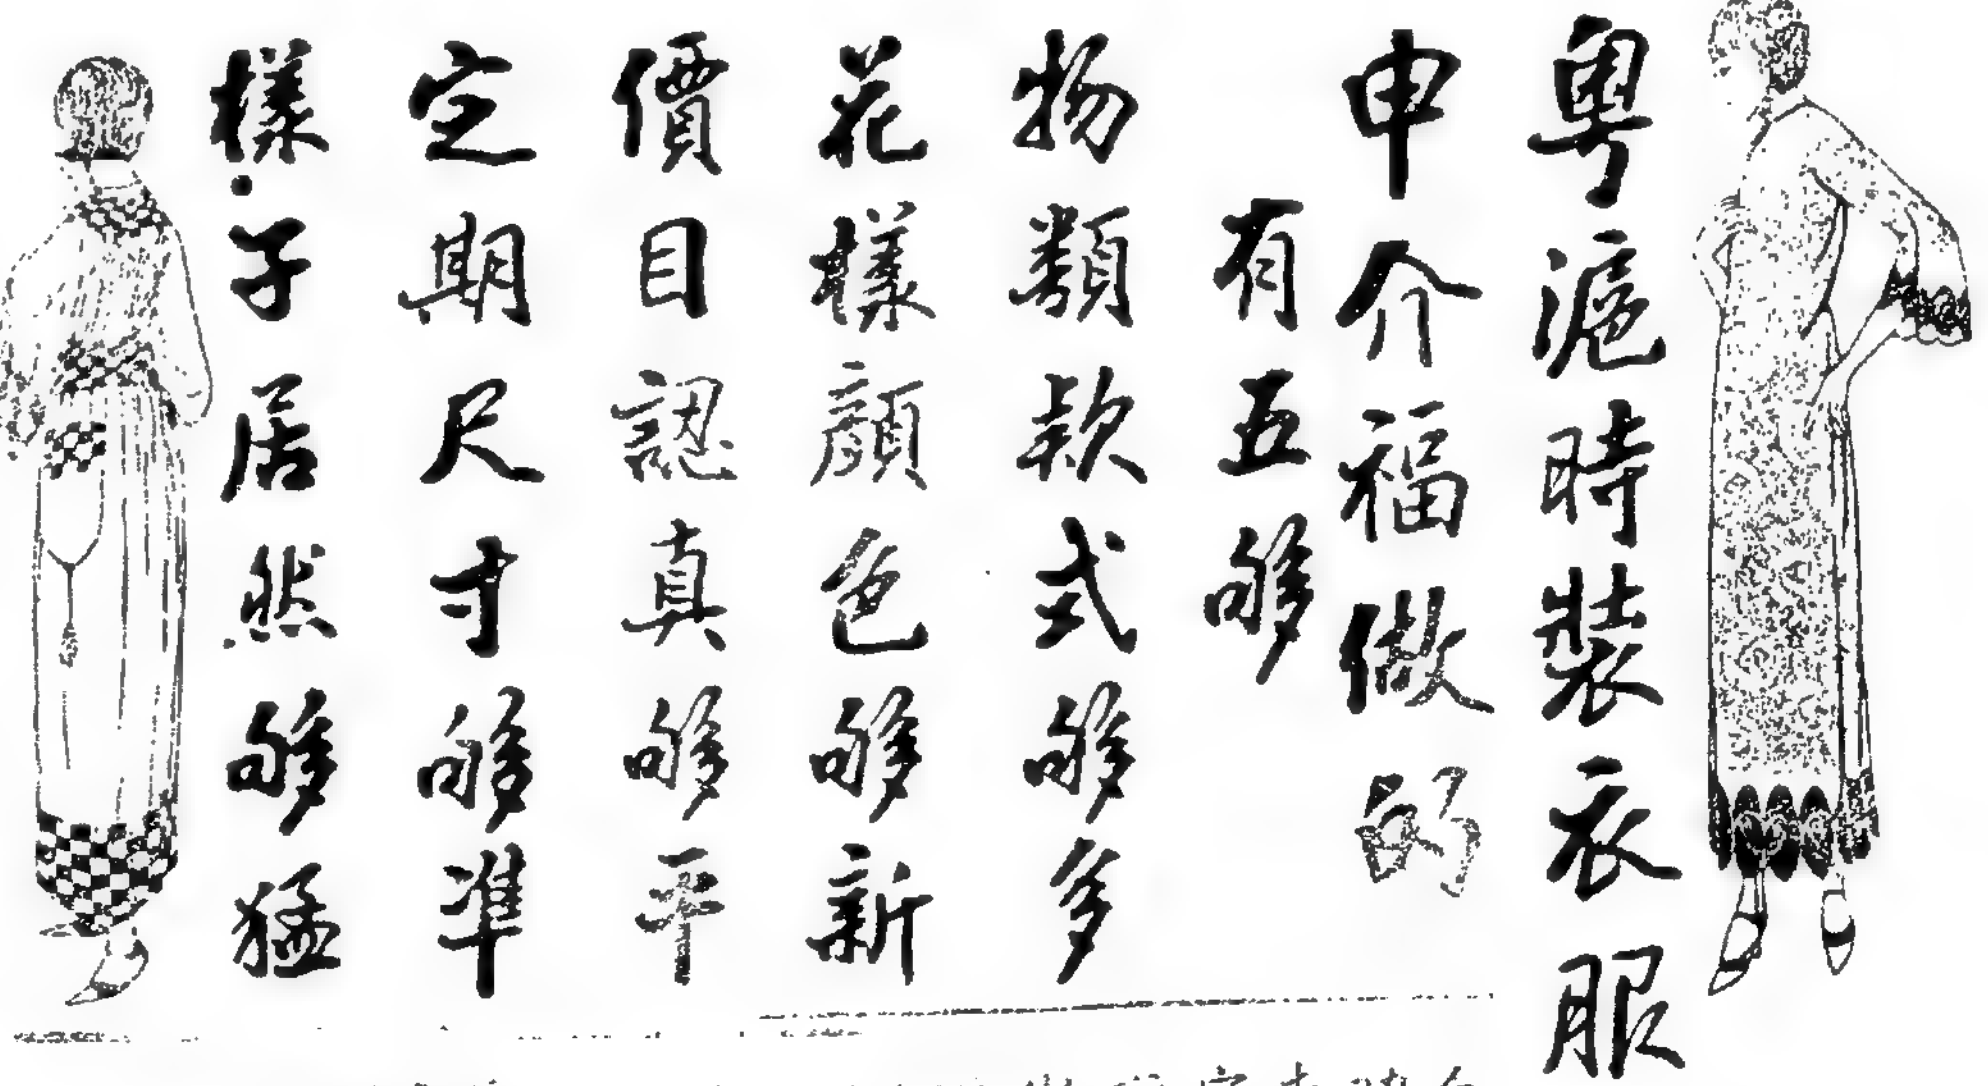 粤滬時裝衣服
申介福做的
有五够
物類款式够多
花樣顏色够新
價目認真够平
定期尺寸够準
樣子居然够猛